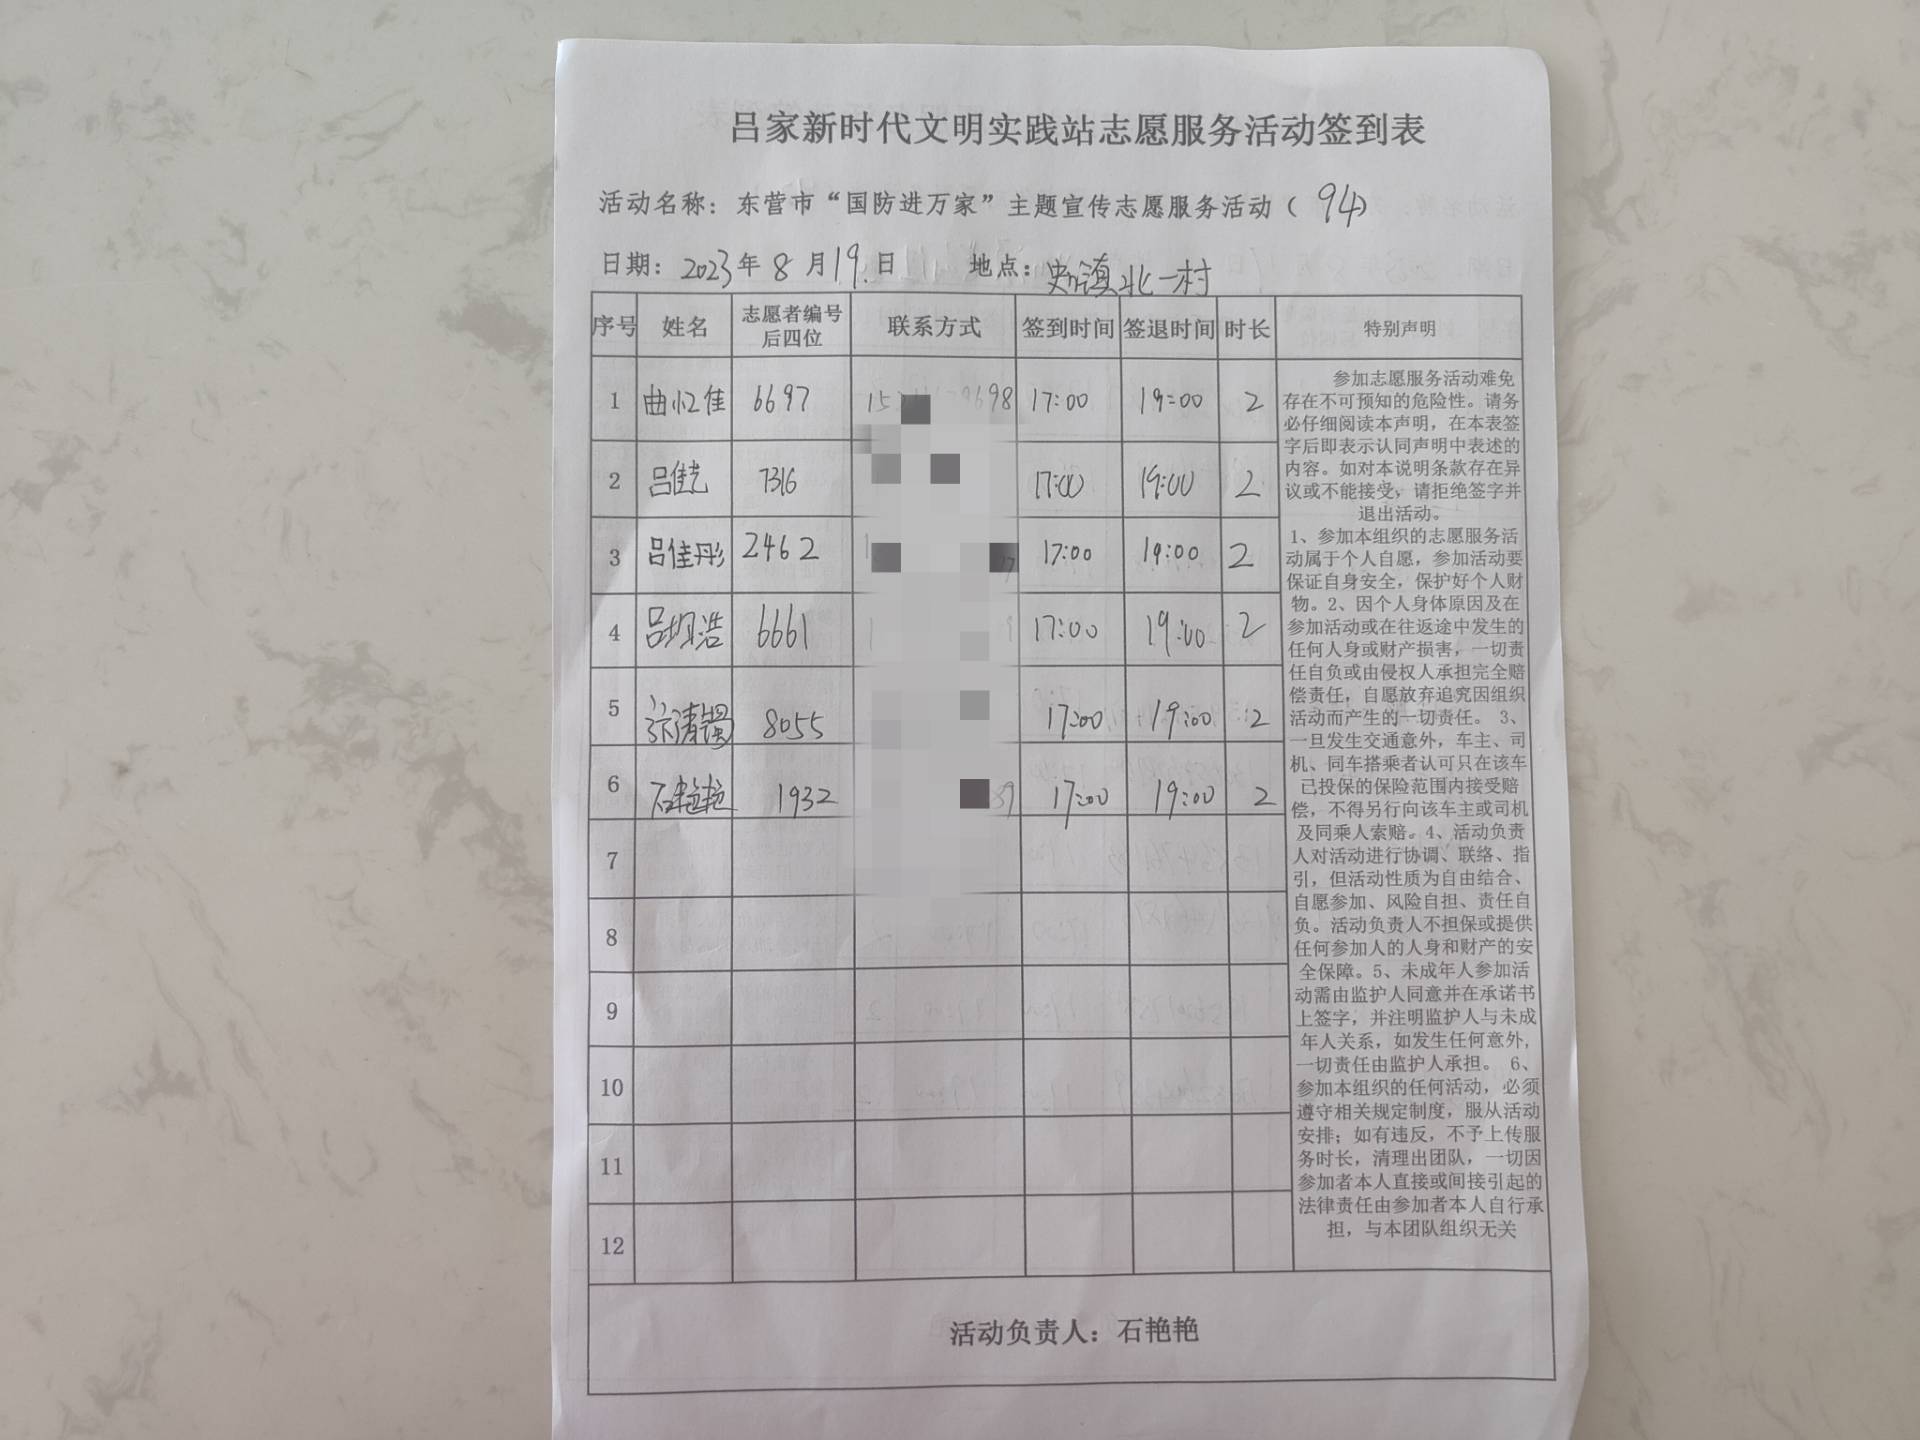 吕家新时代文明实践站志愿服务活动签到表
活动名称：东营市“国防进万家”主题宣传志愿服务活动（94）
日期：2023年8月19.日 地点：镇北一村
序号 姓名 志愿者编号后四位 联系方式 签到时间 签退时间 时长 特别声明
1 曲忆佳 6697 9698 17:00 19:00 2
2 吕佳 7316 17:00 19:00 2
3 吕佳彤 2462 17:00 19:00 2
4 吕浩 6661 17:00 19:00 2
5 8055 17:00 19:00 2
6 石艳艳 1932 17:00 19:00 2
7
8
9
10
11
12
参加志愿服务活动难免
存在不可预知的危险性。请务
必仔细阅读本声明，在本表签
字后即表示认同声明中表述的
内容。如对本说明条款存在异
议或不能接受，请拒绝签字并
退出活动。
1、参加本组织的志愿服务活
动属于个人自愿，参加活动要
保证自身安全，保护好个人财
物。2、因个人身体原因及在
参加活动或在往返途中发生的
任何人身或财产损害，一切责
任自负或由侵权人承担完全赔
偿责任，自愿放弃追究因组织
活动而产生的一切责任。 3、
一旦发生交通意外，车主、司
机、同车搭乘者认可只在该车
已投保的保险范围内接受赔
偿，不得另行向该车主或司机
及同乘人索赔。4、活动负责
人对活动进行协调、联络、指
引，但活动性质为自由结合、
自愿参加、风险自担、责任自
负。活动负责人不担保或提供
任何参加人的人身和财产的安
全保障。5、未成年人参加活
动需由监护人同意并在承诺书
上签字，并注明监护人与未成
年人关系，如发生任何意外，
一切责任由监护人承担。 6、
参加本组织的任何活动，必须
遵守相关规定制度，服从活动
安排；如有违反，不予上传服
务时长，清理出团队，一切因
参加者本人直接或间接引起的
法律责任由参加者本人自行承
担，与本团队组织无关
活动负责人：石艳艳